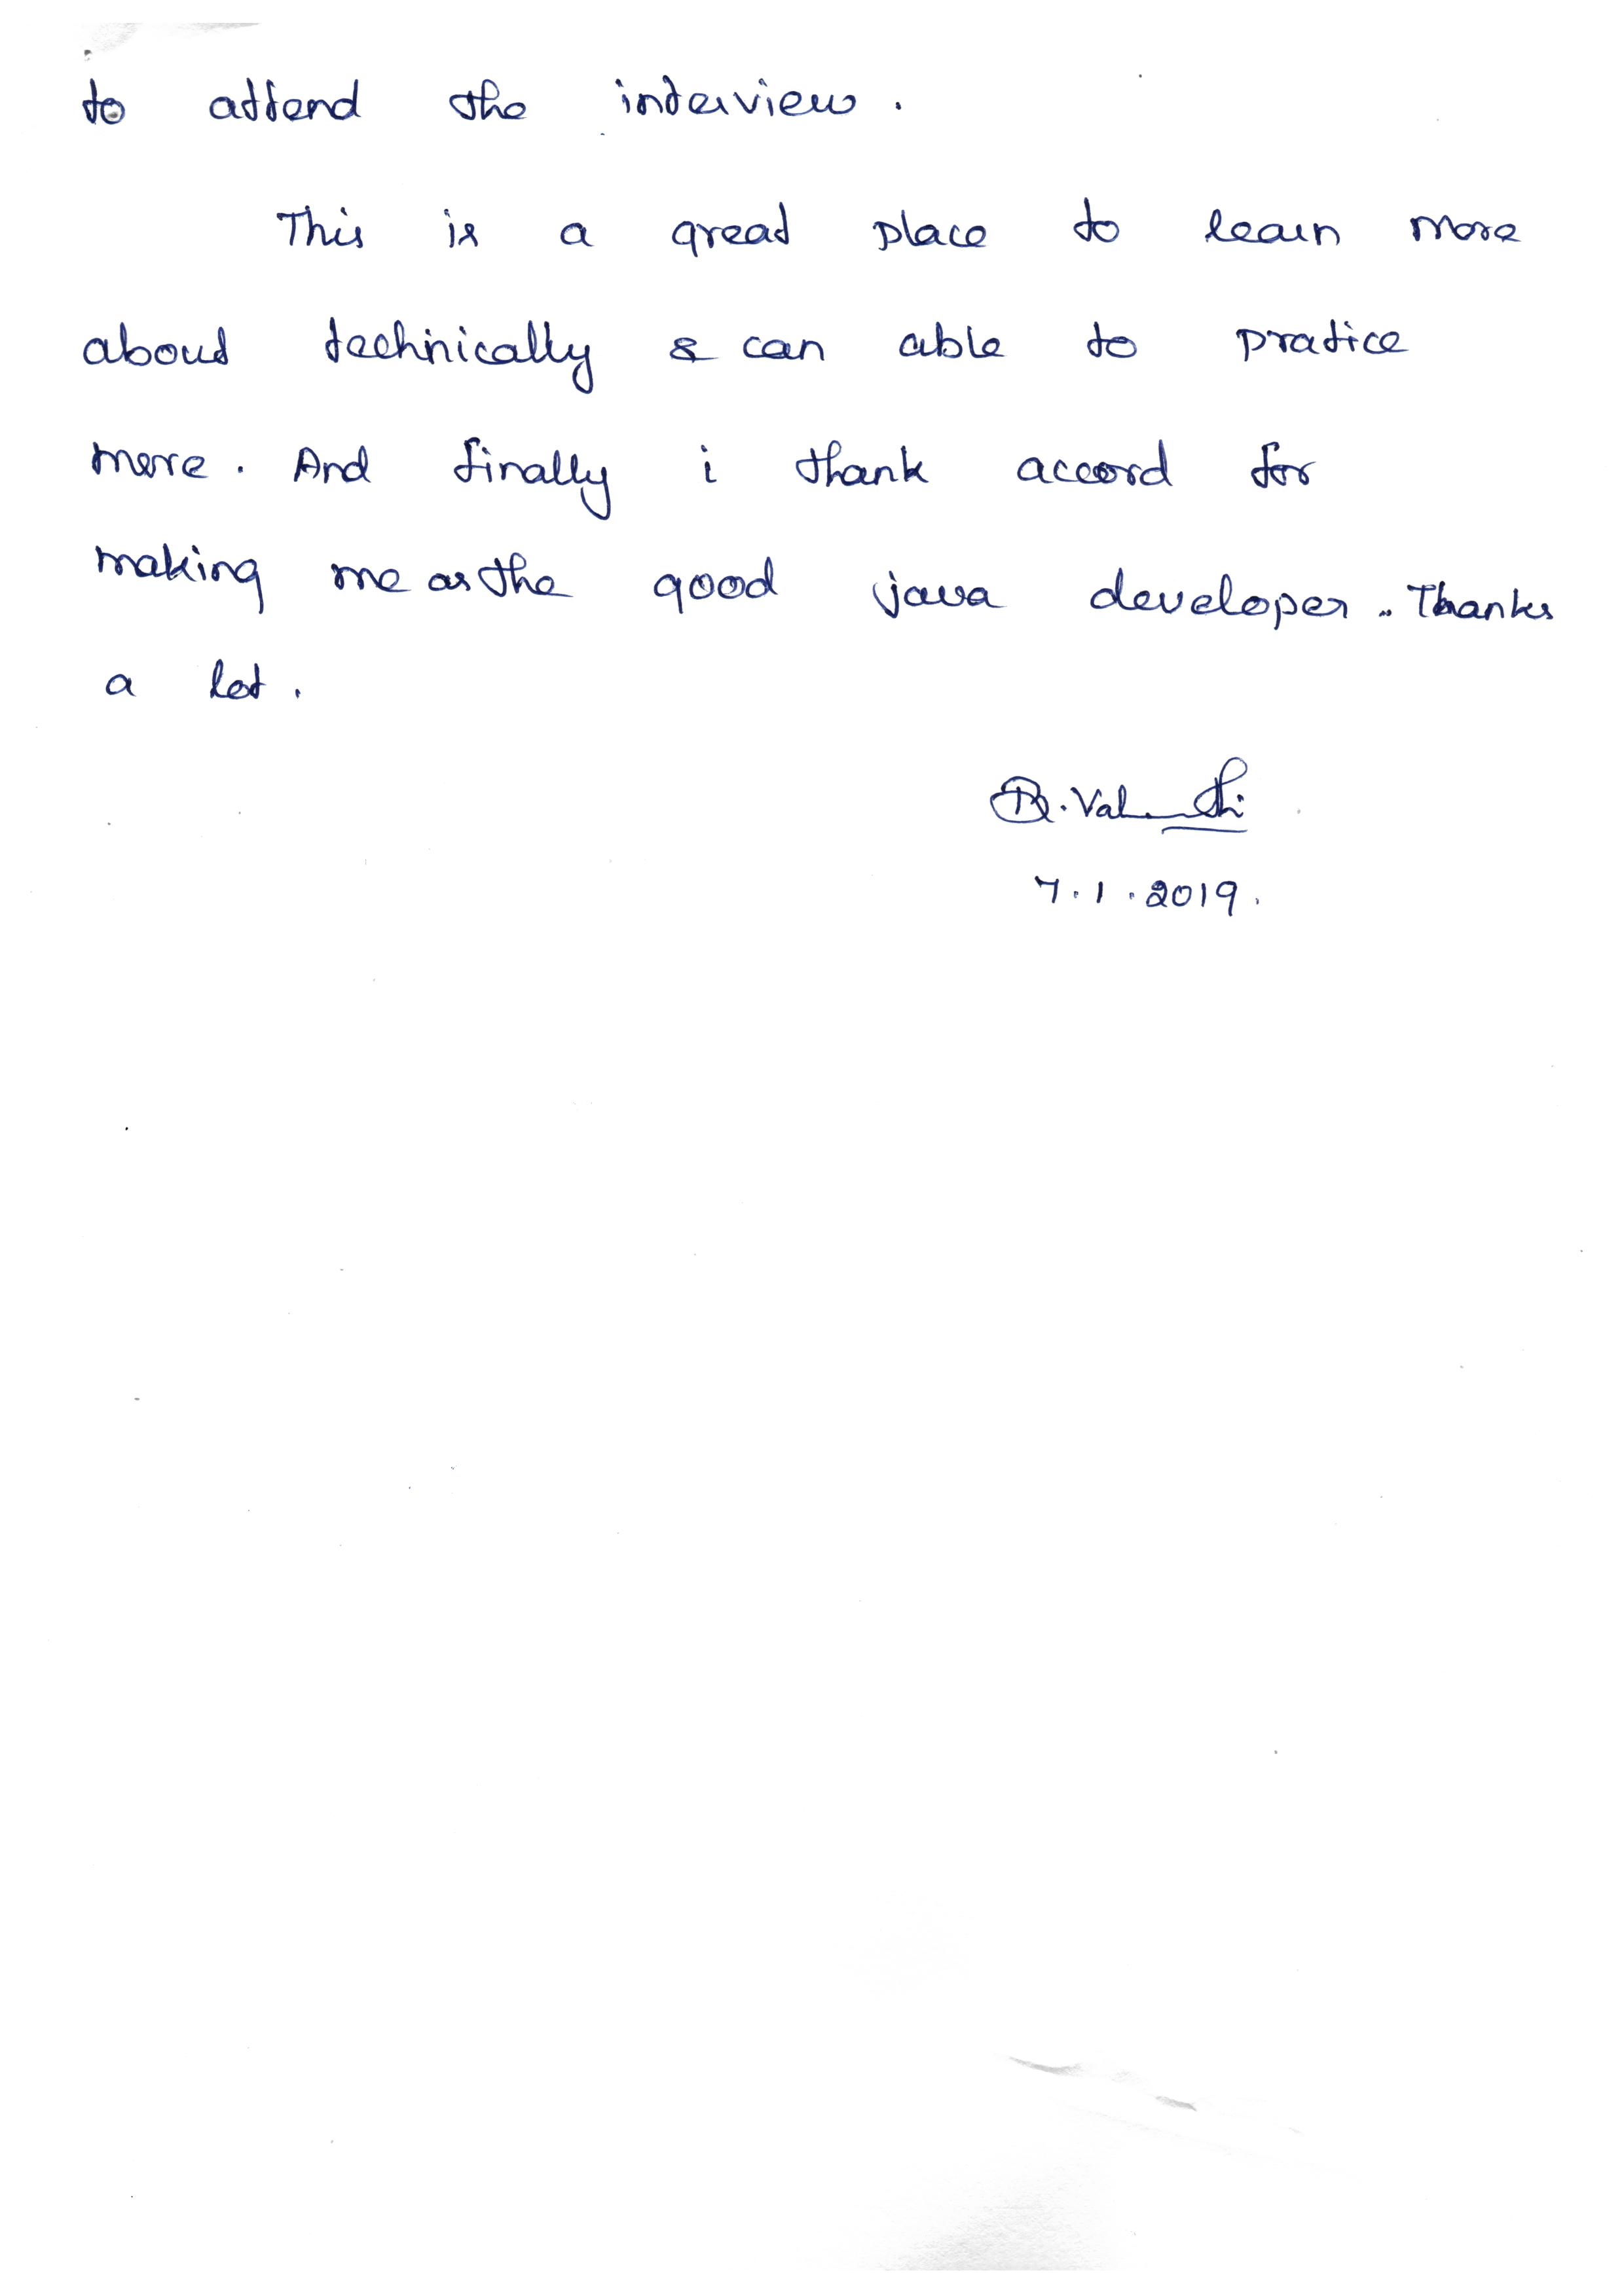 to attend the interview .
This is a great place to learn more
about techinically & can able to pratice
more . And finally i thank accord for
making me as the good java developer .. Thanks
a lot .
7.1.2019.